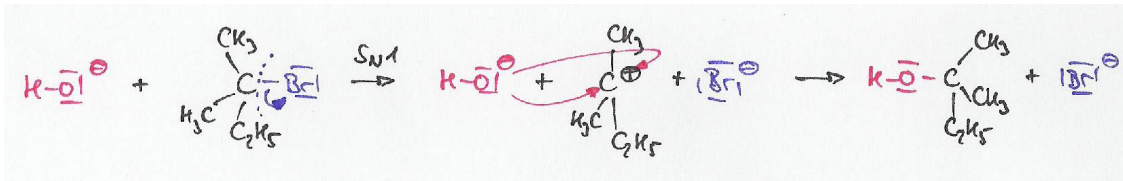 H-O⊖ + CH₃ C H₃C C₂H₅ Br SN1 → H-O⊖ + CH₃ C⊕ H₃C C₂H₅ + Br⊖ → H-O-C CH₃ CH₃ C₂H₅ + Br⊖